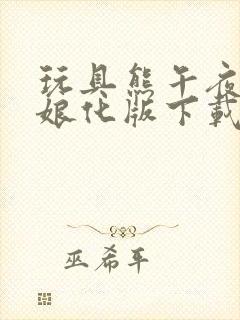 玩具熊午夜
娘化版下载
巫希平